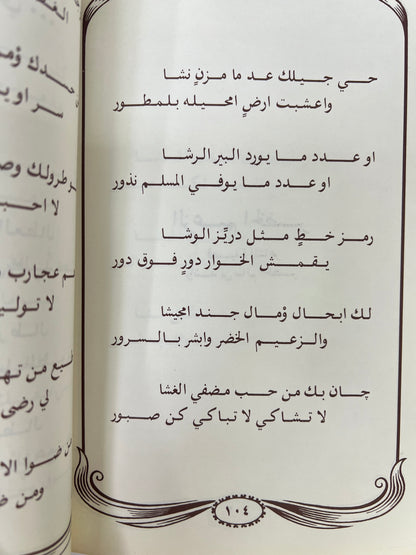 حـي جـيـلك عـد ما مـزنٍ نشا
واعـشبت ارضٍ امحيله بلمطور
او عـدد مـا يـورد البير الرشا
او عدد ما يـوفي المسلم نذور
رمـز خـطٍ مـثل دريّز الوشا
يـقـمش الخـوار دورٍ فـوق دور
لـك ابـحال ؤمـال جـند امجيشا
والـزعيم الخضر وابشر بالـسرور
چـان بـك من حـب مـضفي الغشا
لا تـشاكي لا تـباكي كن صبور
١٠٤